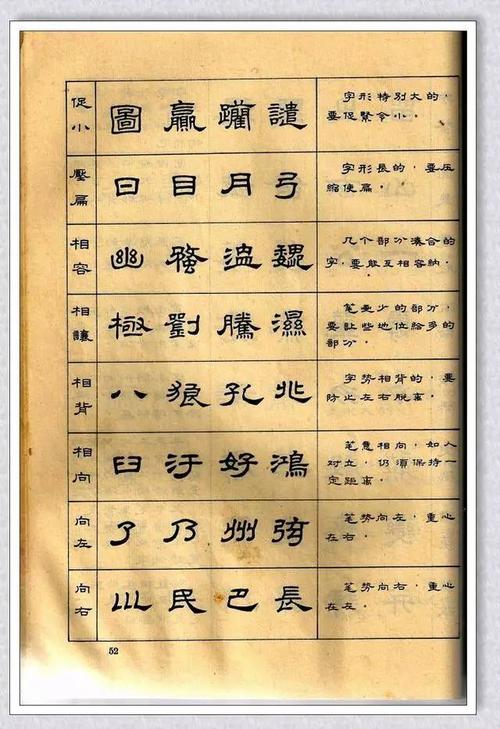 促小
圖 譴
字形特别大的，
要促緊令小。
壓扁
曰 目 月 弓
字形長的，要压
缩使扁。
相容
幽 魏
几个部分湊合的
字，要能互相容納。
相讓
極 劉 騰 濕
笔画少的部分，
要让些地位給多的
部分。
相背
八 狼 孔 兆
字势相背的，要
防止左右脱离。
相向
臼 汙 好 鴻
笔意相向，如人
对立，仍須保持一
定距离。
向左
了 乃 州
笔势向左，重心
在右。
向右
民 巴 長
笔势向右，重心
在左。
52